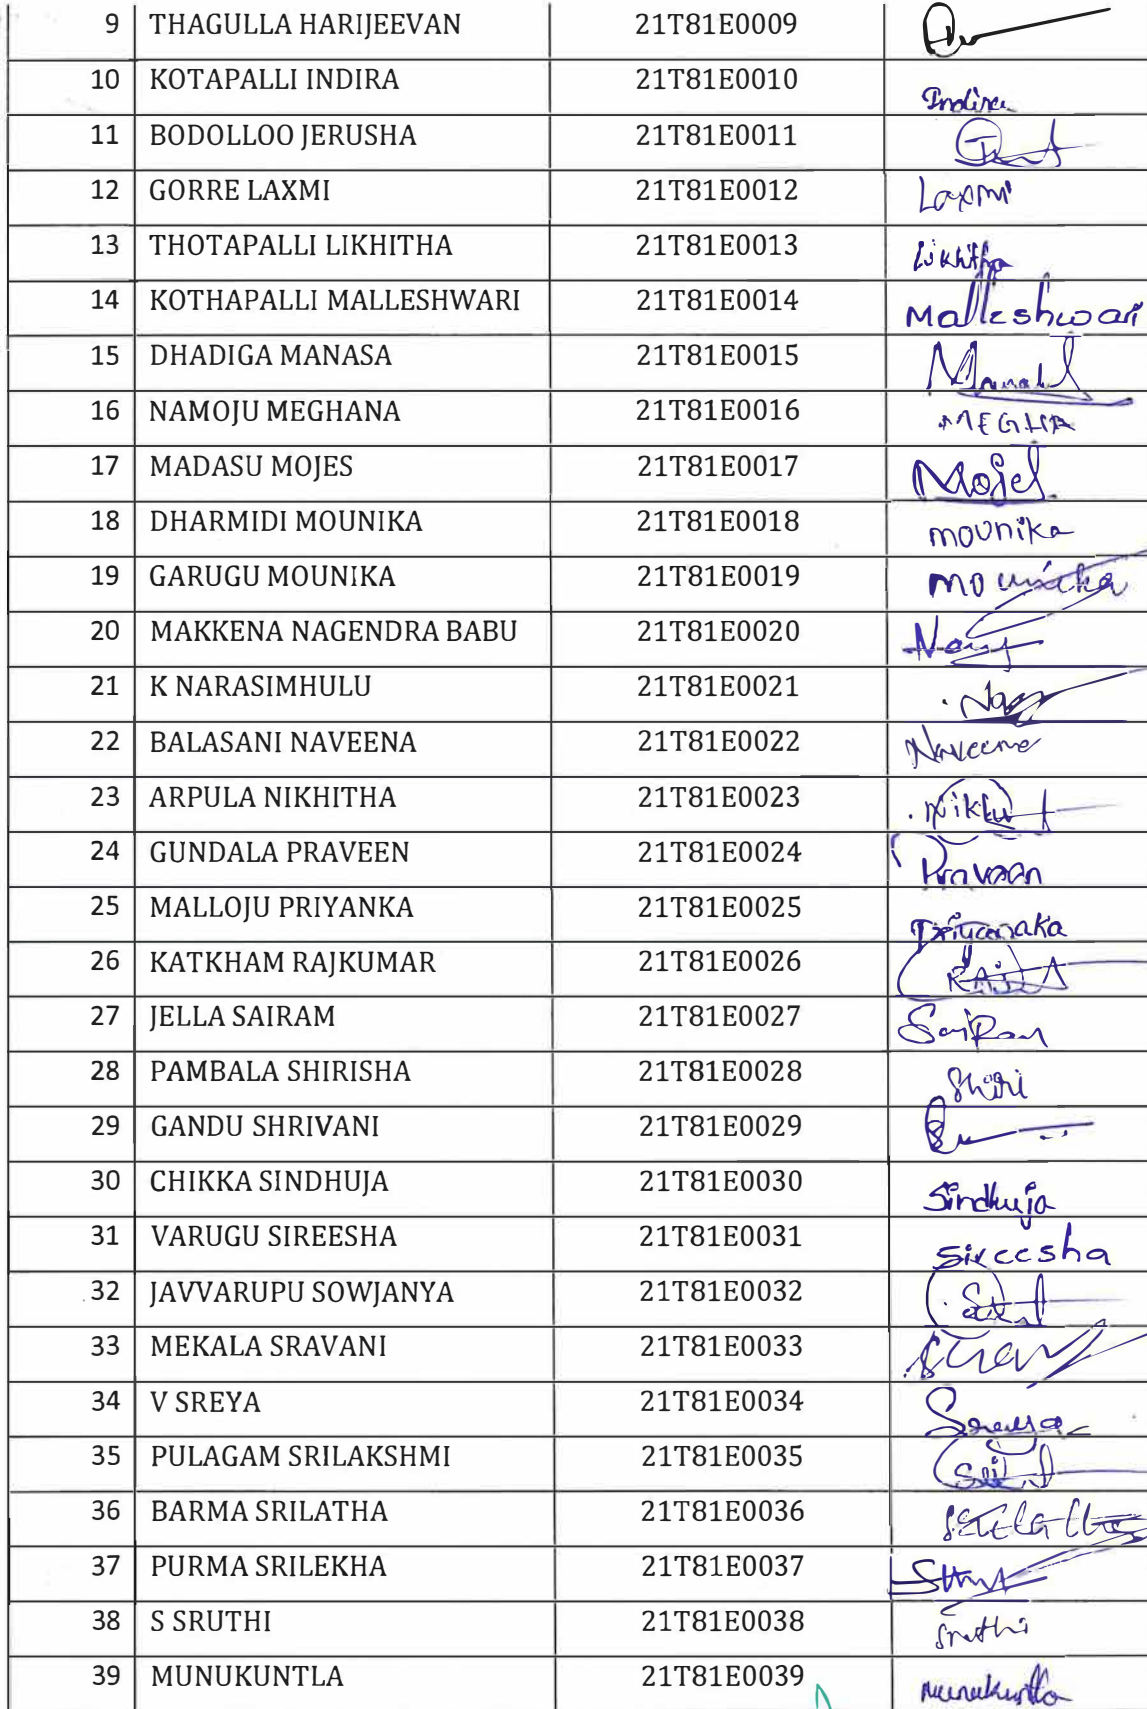 9 THAGULLA HARIJEEVAN 21T81E0009
10 KOTAPALLI INDIRA 21T81E0010 Indira
11 BODOLLOO JERUSHA 21T81E0011
12 GORRE LAXMI 21T81E0012 Laxmi
13 THOTAPALLI LIKHITHA 21T81E0013 Likhitha
14 KOTHAPALLI MALLESHWARI 21T81E0014 Malleshwari
15 DHADIGA MANASA 21T81E0015
16 NAMOJU MEGHANA 21T81E0016 MEGHA
17 MADASU MOJES 21T81E0017 Mojes
18 DHARMIDI MOUNIKA 21T81E0018 mounika
19 GARUGU MOUNIKA 21T81E0019 mounika
20 MAKKENA NAGENDRA BABU 21T81E0020
21 K NARASIMHULU 21T81E0021
22 BALASANI NAVEENA 21T81E0022 Naveena
23 ARPULA NIKHITHA 21T81E0023
24 GUNDALA PRAVEEN 21T81E0024 Praveen
25 MALLOJU PRIYANKA 21T81E0025 Priyanaka
26 KATKHAM RAJKUMAR 21T81E0026
27 JELLA SAIRAM 21T81E0027 SaiRam
28 PAMBALA SHIRISHA 21T81E0028 Shiri
29 GANDU SHRIVANI 21T81E0029
30 CHIKKA SINDHUJA 21T81E0030 Sindhuja
31 VARUGU SIREESHA 21T81E0031 Sireesha
32 JAVVARUPU SOWJANYA 21T81E0032
33 MEKALA SRAVANI 21T81E0033
34 V SREYA 21T81E0034 Sreeya
35 PULAGAM SRILAKSHMI 21T81E0035
36 BARMA SRILATHA 21T81E0036 Srilatha
37 PURMA SRILEKHA 21T81E0037
38 S SRUTHI 21T81E0038 Sruthi
39 MUNUKUNTLA 21T81E0039 Munukuntla